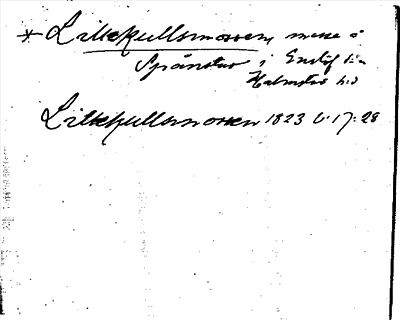 * Lillekullsmossen, mosse i
Spånstad i Enslöf sn
Halmstad hd
Lillekullsmossen 1823 6:17:28